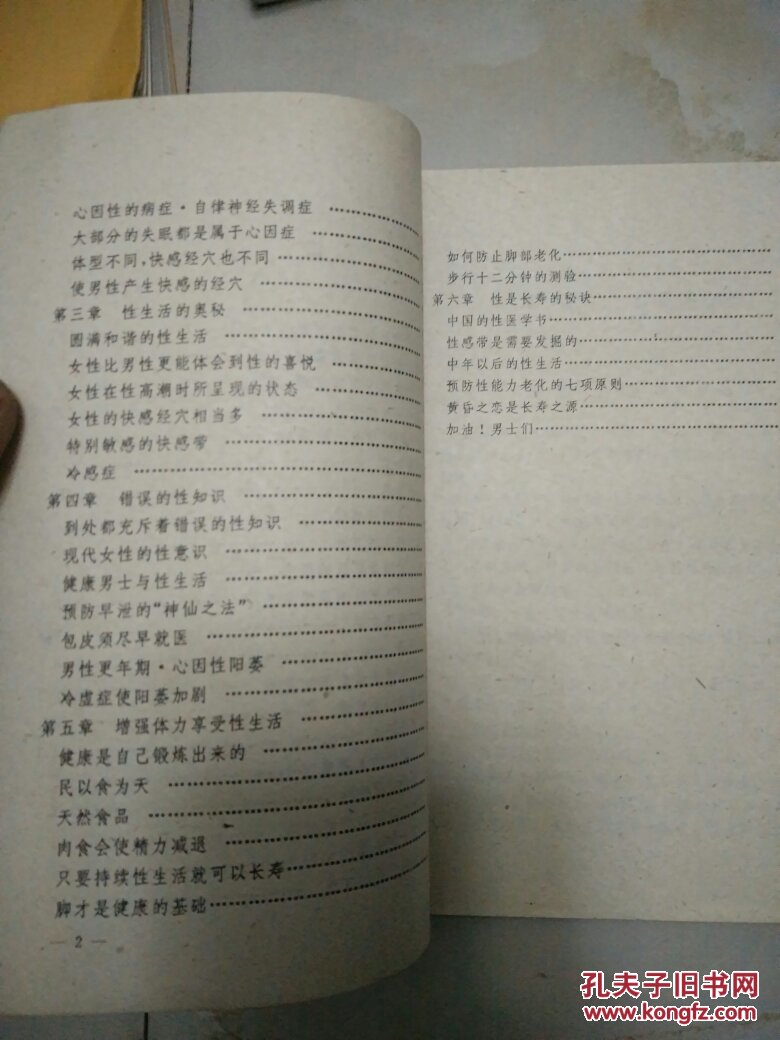 心因性的病症·自律神经失调症 ……………
大部分的失眠都是属于心因症 ……………
体型不同,快感经穴也不同 ……………
使男性产生快感的经穴 ……………
第三章 性生活的奥秘 ……………
圆满和谐的性生活 ……………
女性比男性更能体会到性的喜悦 ……………
女性在性高潮时所呈现的状态 ……………
女性的快感经穴相当多 ……………
特别敏感的快感带 ……………
冷感症 ……………
第四章 错误的性知识 ……………
到处都充斥着错误的性知识 ……………
现代女性的性意识 ……………
健康男士与性生活 ……………
预防早泄的“神仙之法” ……………
包皮须尽早就医 ……………
男性更年期·心因性阳萎 ……………
冷虚症使阳萎加剧 ……………
第五章 增强体力享受性生活 ……………
健康是自己锻炼出来的 ……………
民以食为天 ……………
天然食品 ……………
肉食会使精力减退 ……………
只要持续性生活就可以长寿……………
脚才是健康的基础……………
— 2 —
如何防止脚部老化……………
步行十二分钟的测验……………
第六章 性是长寿的秘诀……………
中国的性医学书……………
性感带是需要发掘的……………
中年以后的性生活……………
预防性能力老化的七项原则……………
黄昏之恋是长寿之源……………
加油！男士们……………
孔夫子旧书网
www.kongfz.com